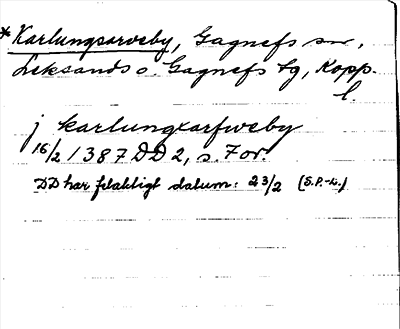 *Karlungsarveby, Gagnefs sn,
Leksands o. Gagnefs tg, Kopp.
l.
j karlungxarfweby
16/2 1387 DD 2, s. For.
DD har felaktigt datum: 23/2 (S.P-L.)